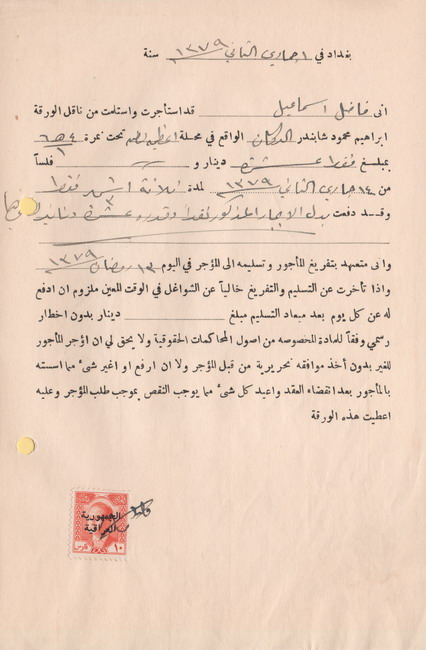 بغداد في ١ جمادي الثاني ١٣٧٩ سنة
انى فاضل اسماعيل قد استأجرت واستلمت من ناقل الورقة
ابراهيم محمود شابندر الدكان الواقع في محلة تحت نمرة
بمبلغ فقط عشرة دينار و فلساً
من ١٤ جمادي الثاني ١٣٧٩ لمدة ثلاثة اشهر فقط
وقد دفعت بدل الايجار المذكور نقدا وقدره عشرة دنانير
وانى متعهد بتفريغ المأجور وتسليمه الى المؤجر في اليوم ١٣ رمضان ١٣٧٩
واذا تأخرت عن التسليم والتفريغ خالياً عن الشواغل في الوقت المعين ملزوم ان ادفع
له عن كل يوم بعد ميعاد التسليم مبلغ دينار بدون اخطار
رسمي وفقاً للمادة المخصوصه من اصول المحاكمات الحقوقية ولا يحق لي ان اؤجر المأجور
للغير بدون أخذ موافقه تحريرية من قبل المؤجر ولا ان ارفع او اغير شىء مما اسسته
بالمأجور بعد انقضاء العقد واعيد كل شىء مما يوجب النقص بموجب طلب المؤجر وعليه
اعطيت هذه الورقة
الجمهورية
العراقية
١٠ فلوس